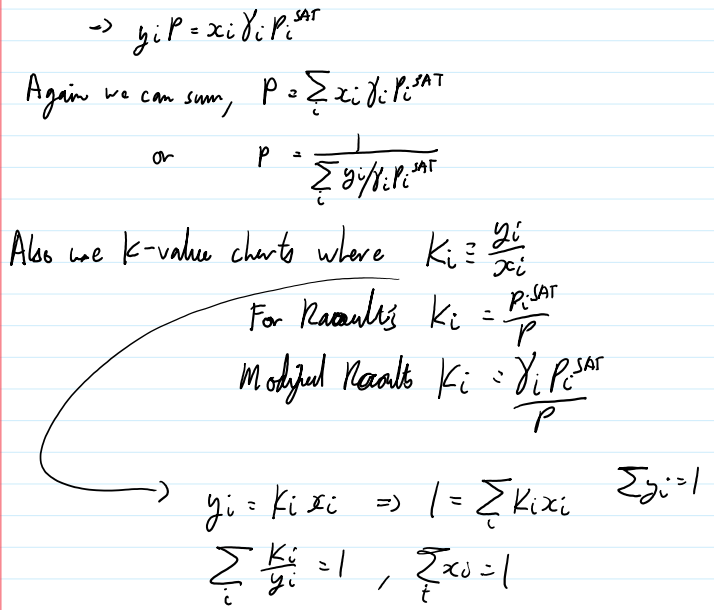 → yᵢP = xᵢγᵢPᵢ^SAT
Again we can sum, P = Σᵢ xᵢγᵢPᵢ^SAT
or P = 1 / Σᵢ yᵢ/γᵢPᵢ^SAT
Also use K-value charts where Kᵢ ≡ yᵢ/xᵢ
For Raoult's Kᵢ = Pᵢ^SAT/P
Modified Raoults Kᵢ = γᵢPᵢ^SAT/P
→ yᵢ = Kᵢxᵢ ⇒ 1 = Σᵢ Kᵢxᵢ Σyᵢ=1
Σᵢ Kᵢ/yᵢ = 1 , Σᵢ xᵢ = 1